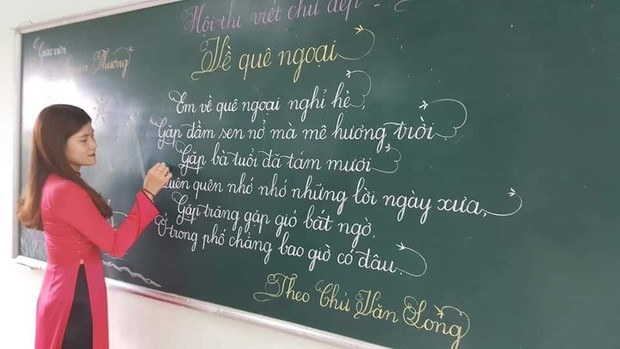 Hội thi viết chữ đẹp -
Giáo viên
Thương
Về quê ngoại
Em về quê ngoại nghỉ hè,
Gặp đầm sen nở mà mê hương trời.
Gặp bà tuổi đã tám mươi
uên quên nhớ nhớ những lời ngày xưa,
Gặp trăng gặp gió bất ngờ,
Ở trong phố chẳng bao giờ có đâu.
Theo Chử Văn Long